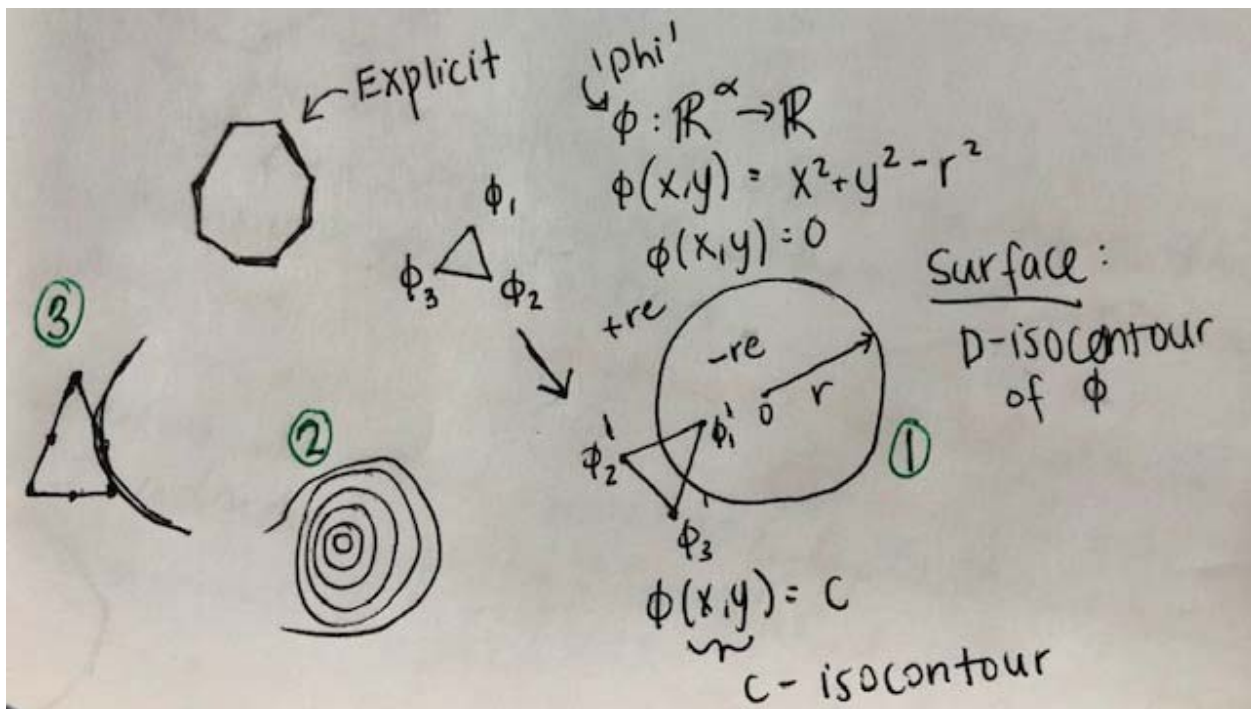 Explicit
'phi'
ϕ : ℝ^α → ℝ
ϕ(x,y) = x² + y² - r²
ϕ(x,y) = 0
ϕ₁
ϕ₃
ϕ₂
Surface:
D-isocontour
of ϕ
+re
-re
0
r
①
ϕ₁'
ϕ₂'
ϕ₃'
②
③
ϕ(x,y) = C
C - isocontour